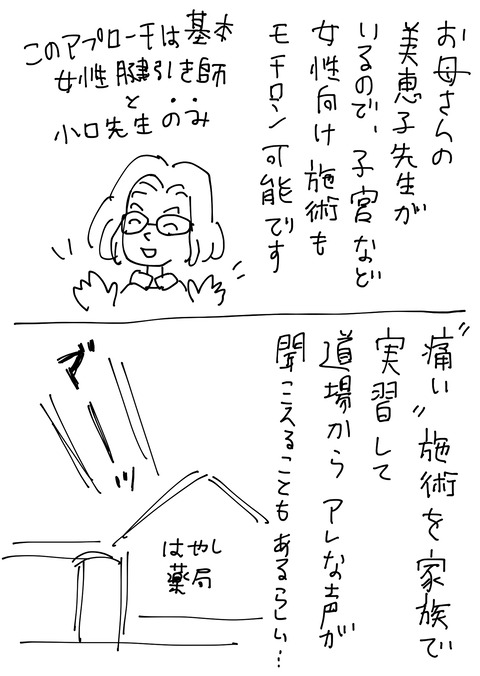 お母さんの
美恵子先生が
いるので、子宮など
女性向け施術も
モチロン可能です
このアプローチは基本
女性腱引き師
と
小口先生のみ
"痛い"施術を家族で
実習して
道場からアレな声が
聞こえることもあるらしい…
ブーッ
はやし
薬局